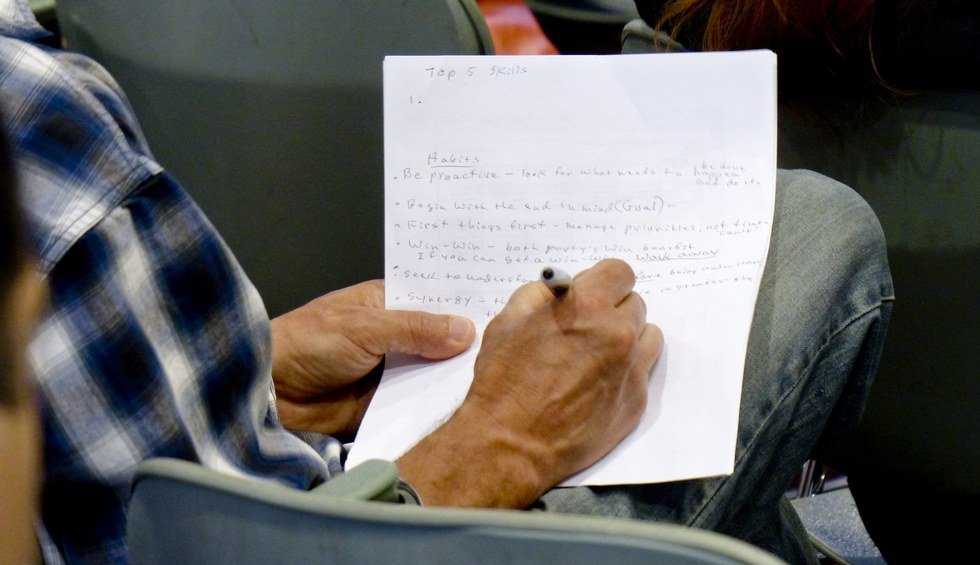 Top 5 Skills
1.
Habits
• Be proactive - look for what needs to be done
happen
and do it.
• Begin with the end in mind (Goal)
• First things first - manage priorities, not time
can't
• Win-Win - both party's win benefit
If you can get a win-win walk away
• Seek to understand being understood
• Synergy -